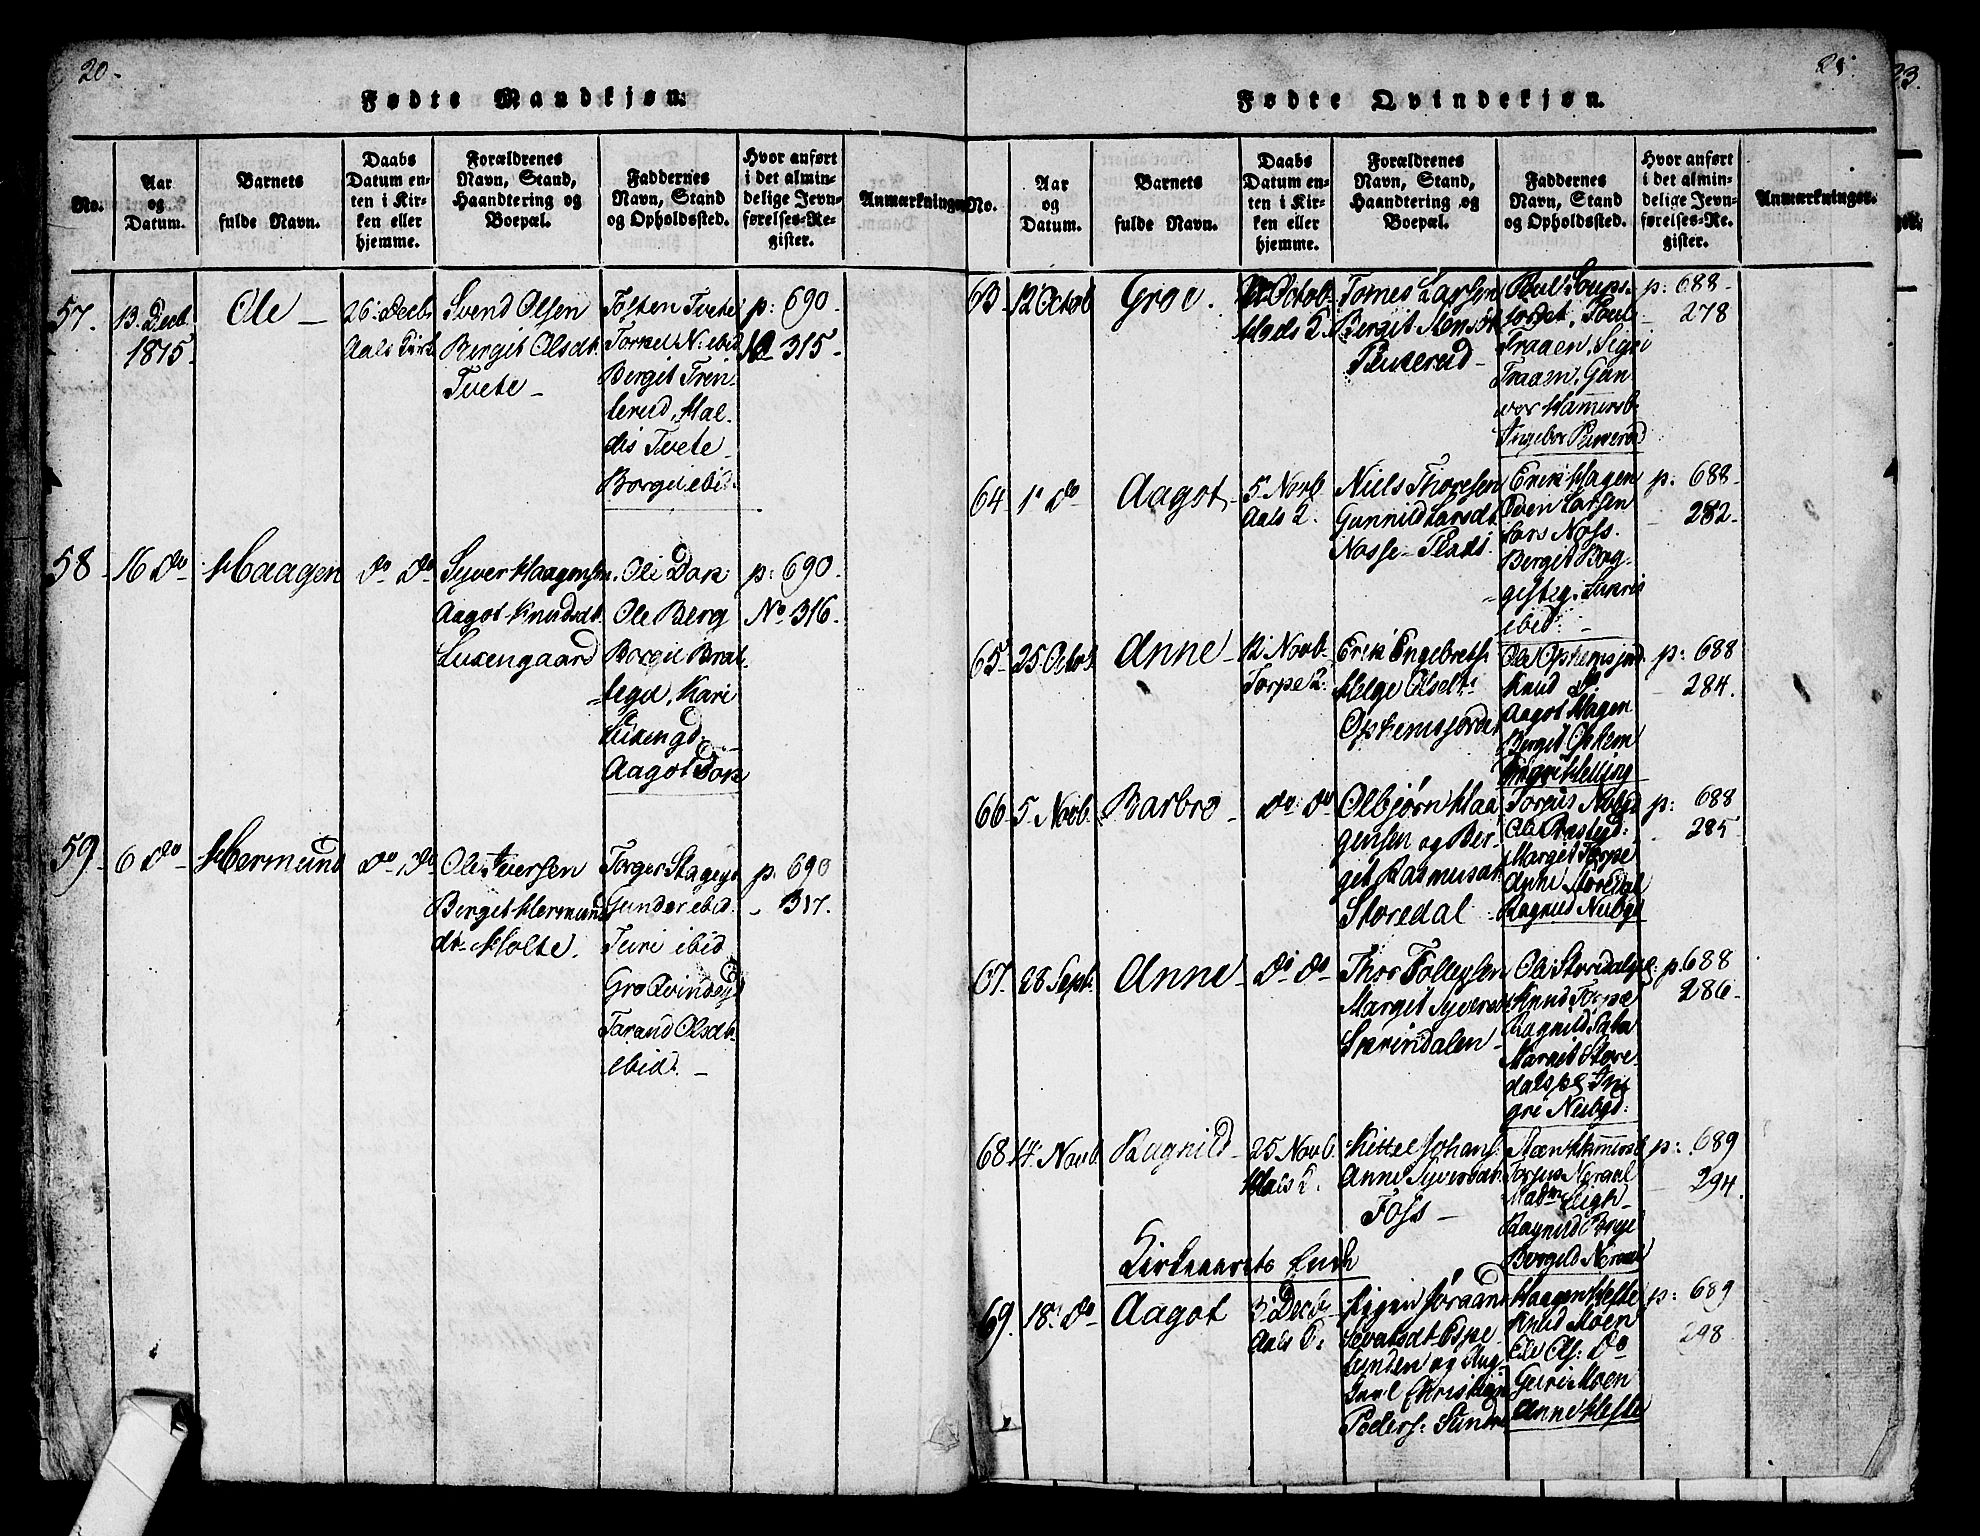 20.
Fødte Mandkjøn.
No.
Aar
og
Datum.
Barnets
fulde Navn.
Daabs
Datum en-
ten i Kir-
ken eller
hjemme.
Forældrenes
Navn, Stand,
Haandtering og
Boepæl.
Faddernes
Navn, Stand
og Opholdssted.
Hvor anført
i det almin-
delige Jevn-
førelses-Re-
gister.
Anmærkninger
57.
13. Decb.
1815
Ole
26. Decb.
Aals Kirk
Svend Olsen
Bergit Olsdt.
Tvete
Torkel N. ibid
Bergit Tren-
terud, Hal-
dis Tvete
Borgil ibid.
p: 690.
No 315.
58
16 do
Haagen
do do
Syver Haagensen
Aagot Knudsdt.
Luxengaard
Ole Dok
Ole Berg
Borgil Brat-
tegd, Kari
Luxengd.
Aagot Dok
p: 690.
No 316.
59.
6 do
Hermund
do do
Ole Iversen
Bergit Hermund
dt. Holte.
Torger Stagegd
Gunder ibid.
Turi ibid
Gro Qvindegd
Tarand Olsdt.
ibid.
p. 690
317.
Fødte Qvindekjøn.
No.
Aar
og
Datum.
Barnets
fulde Navn.
Daabs
Datum en-
ten i Kir-
ken eller
hjemme.
Forældrenes
Navn, Stand,
Haandtering og
Boepæl.
Faddernes
Navn, Stand
og Opholdssted.
Hvor anført
i det almin-
delige Jevn-
førelses-Re-
gister.
Anmærkninger.
63
12 Octob
Groe.
Octob.
Aals K.
Tomes Larsen
Bergit
Poul
Traaen, Segri
Traaen, Gun
vor Hamersb.
p: 688
278
64
1. do
Aagot
5 Novb
Aals K.
Niels Thoresen
Gunnild Larsdt.
Nosse-Plads.
Erik Hagen
Even Larsen
Lars Noss.
Bergit Bag-
ibid.
p. 688
282.
65
25 Octob.
Anne
12 Novb.
Torpe K.
Erik Engebrets.
Helge Olsdt.
Opheimsjordet
Ole Opheimsjord.
Knud do
Aagot Hagen
Bergit Opheim
p: 688
284.
66
5 Novb.
Barbro
do: do
Olbjørn Haa
gensen og Ber-
get Rasmusdt.
Storedal
Margit Torpe
Anne Storedal
Ragnild Nubgd
p: 688
285
67.
28 Sept.
Anne
do do
Thor Tollefsen
Marget Syversd
Skrindalen
Ole Storedalspl.
Knud Torpe
Ragnild
Margit Store-
dalspl. In
gri Nubgd.
p. 688
286.
68
14. Novb.
Ragnild
25 Novb.
Aals K.
Kittel Johans.
Anne Syversdt.
Foss
Steen Hammersb.
Torger Neraal
Ragnild
Bergild Neraal
p: 689
294.
Kirkeaarets Ende
69.
18. do
Aagot
3. Decb.
Aals K.
Espe-
lunden og Aug-
Christian
Peders. Sundre
Haagen Hefte
Knud Moen
Ole Ols. do
Guri Moen
Anne Hefte
p: 689
298.
23.